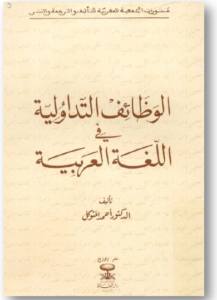 منشورات الجمعية المغربية للتأليف والترجمة والنشر
الوظائف التداولية
في
اللغة العربية
تأليف
الدكتور أحمد المتوكل